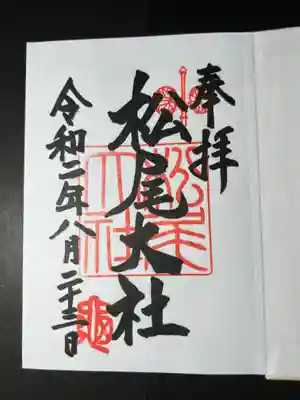 奉拝
松尾大社
松尾大社
令和二年八月二十三日